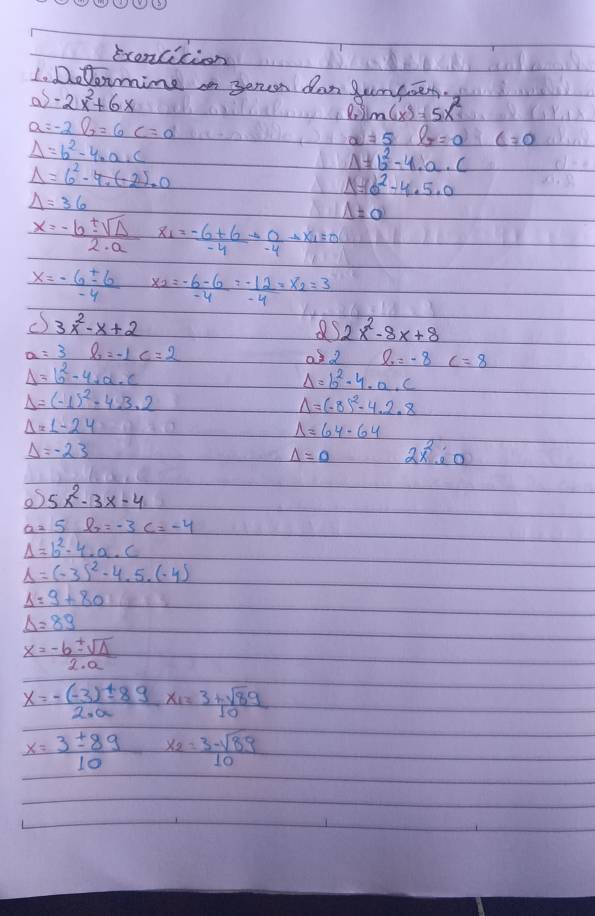 Exercícios
1. Determine os zeros das funções.
a) -2x²+6x
a=-2 b=6 c=0
Δ=b²-4.a.c
Δ=6²-4.(-2).0
Δ=36
x=-b±√Δ/2.a x₁=-6+6/-4 → 0/-4 → x₁=0
x=-6±6/-4 x₂=-6-6/-4=-12/-4=x₂=3
b) m(x)=5x²
a=5 b=0 c=0
Δ=b²-4.a.c
Δ=0²-4.5.0
Δ=0
c) 3x²-x+2
a=3 b=-1 c=2
Δ=b²-4.a.c
Δ=(-1)²-4.3.2
Δ=1-24
Δ=-23
d) 2x²-8x+8
a=2 b=-8 c=8
Δ=b²-4.a.c
Δ=(-8)²-4.2.8
Δ=64-64
Δ=0 2x² é 0
e) 5x²-3x-4
a=5 b=-3 c=-4
Δ=b²-4.a.c
Δ=(-3)²-4.5.(-4)
Δ=9+80
Δ=89
x=-b±√Δ/2.a
x=-(-3)±89/2.a x₁=3+√89/10
x=3±89/10 x₂=3-√89/10